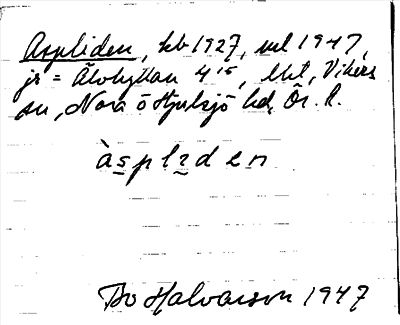 Aspliden, kb 1927, ml 1947,
jr = Älvhyttan 4¹⁵, lht, Vikers
sn, Nora o Hjulsjö hd, Ör. l.
àsplɩden
Bo Halvarson 1947